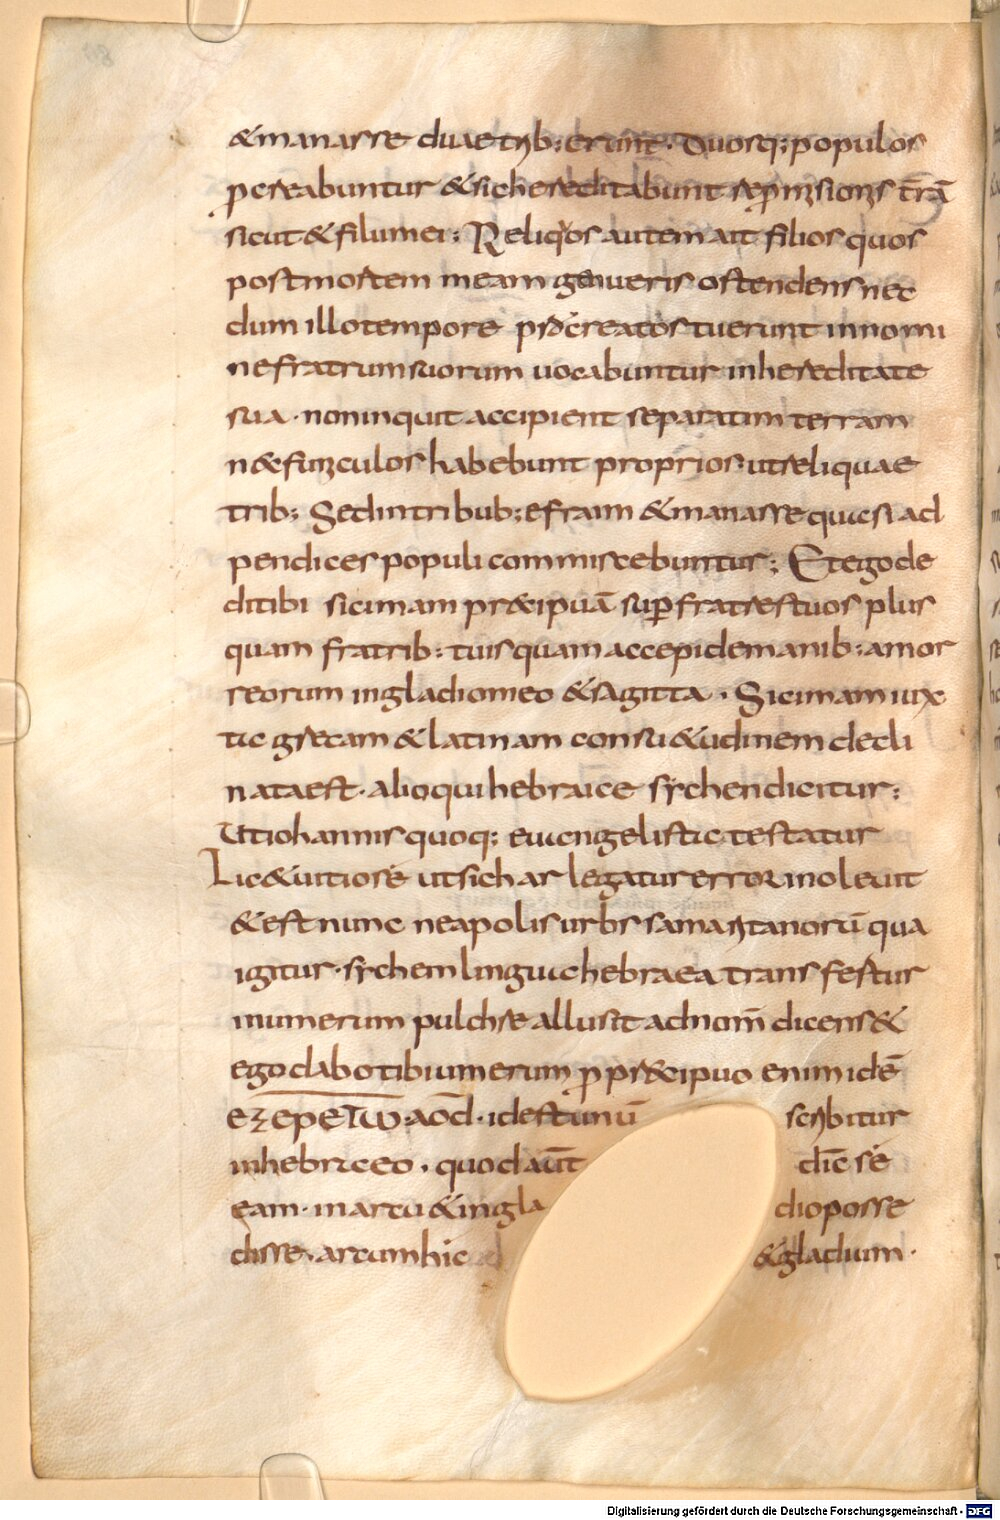 &manasse duae trib; erunt. Duosq; populos
pcreabuntur &sic hereditabunt repromissionis trā
sicut & filii mei; Reliqos autem ait filios quos
post mortem meam genueris ostendens nec
dum illo tempore pcreatos fuerunt in nomi
ne fratrum suorum uocabuntur in hereditate
sua. non inquit accipient separatim terram
n& funiculos habebunt proprios ut reliquae
trib; Sed in tribub; efraim & manasse quasi ad
pendices populi commiscebuntur; Et ego de
di tibi sicimam pr&ipuā sup fratres tuos plus
quam fratrib; tuis quam accepi de manib; amor
reorum in gladio meo & sagitta. Sicimam iux
ta grecam & latinam consu&udinem decli
nata est. alioqui hebraice sychen dicitur;
Ut iohannis quoq; euangelista testatur
Lic& uitiose ut sichar legatur error inoleuit
& est nunc neapolis urbs samaritanorū qua
igitur. sychem lingua hebraea transfertur
in umerum pulchre allusit ad nom̄ dicens &
ego dabo tibi umerum p pr&ipuo enim id ē
ezepeτω. aod. id est unū scribitur
in hebraeo. quod aut̄ dic̄ se
eam. in arcu & in gla dio posse
disse. arcum hic & gladium.
Digitalisierung gefördert durch die Deutsche Forschungsgemeinschaft - DFG